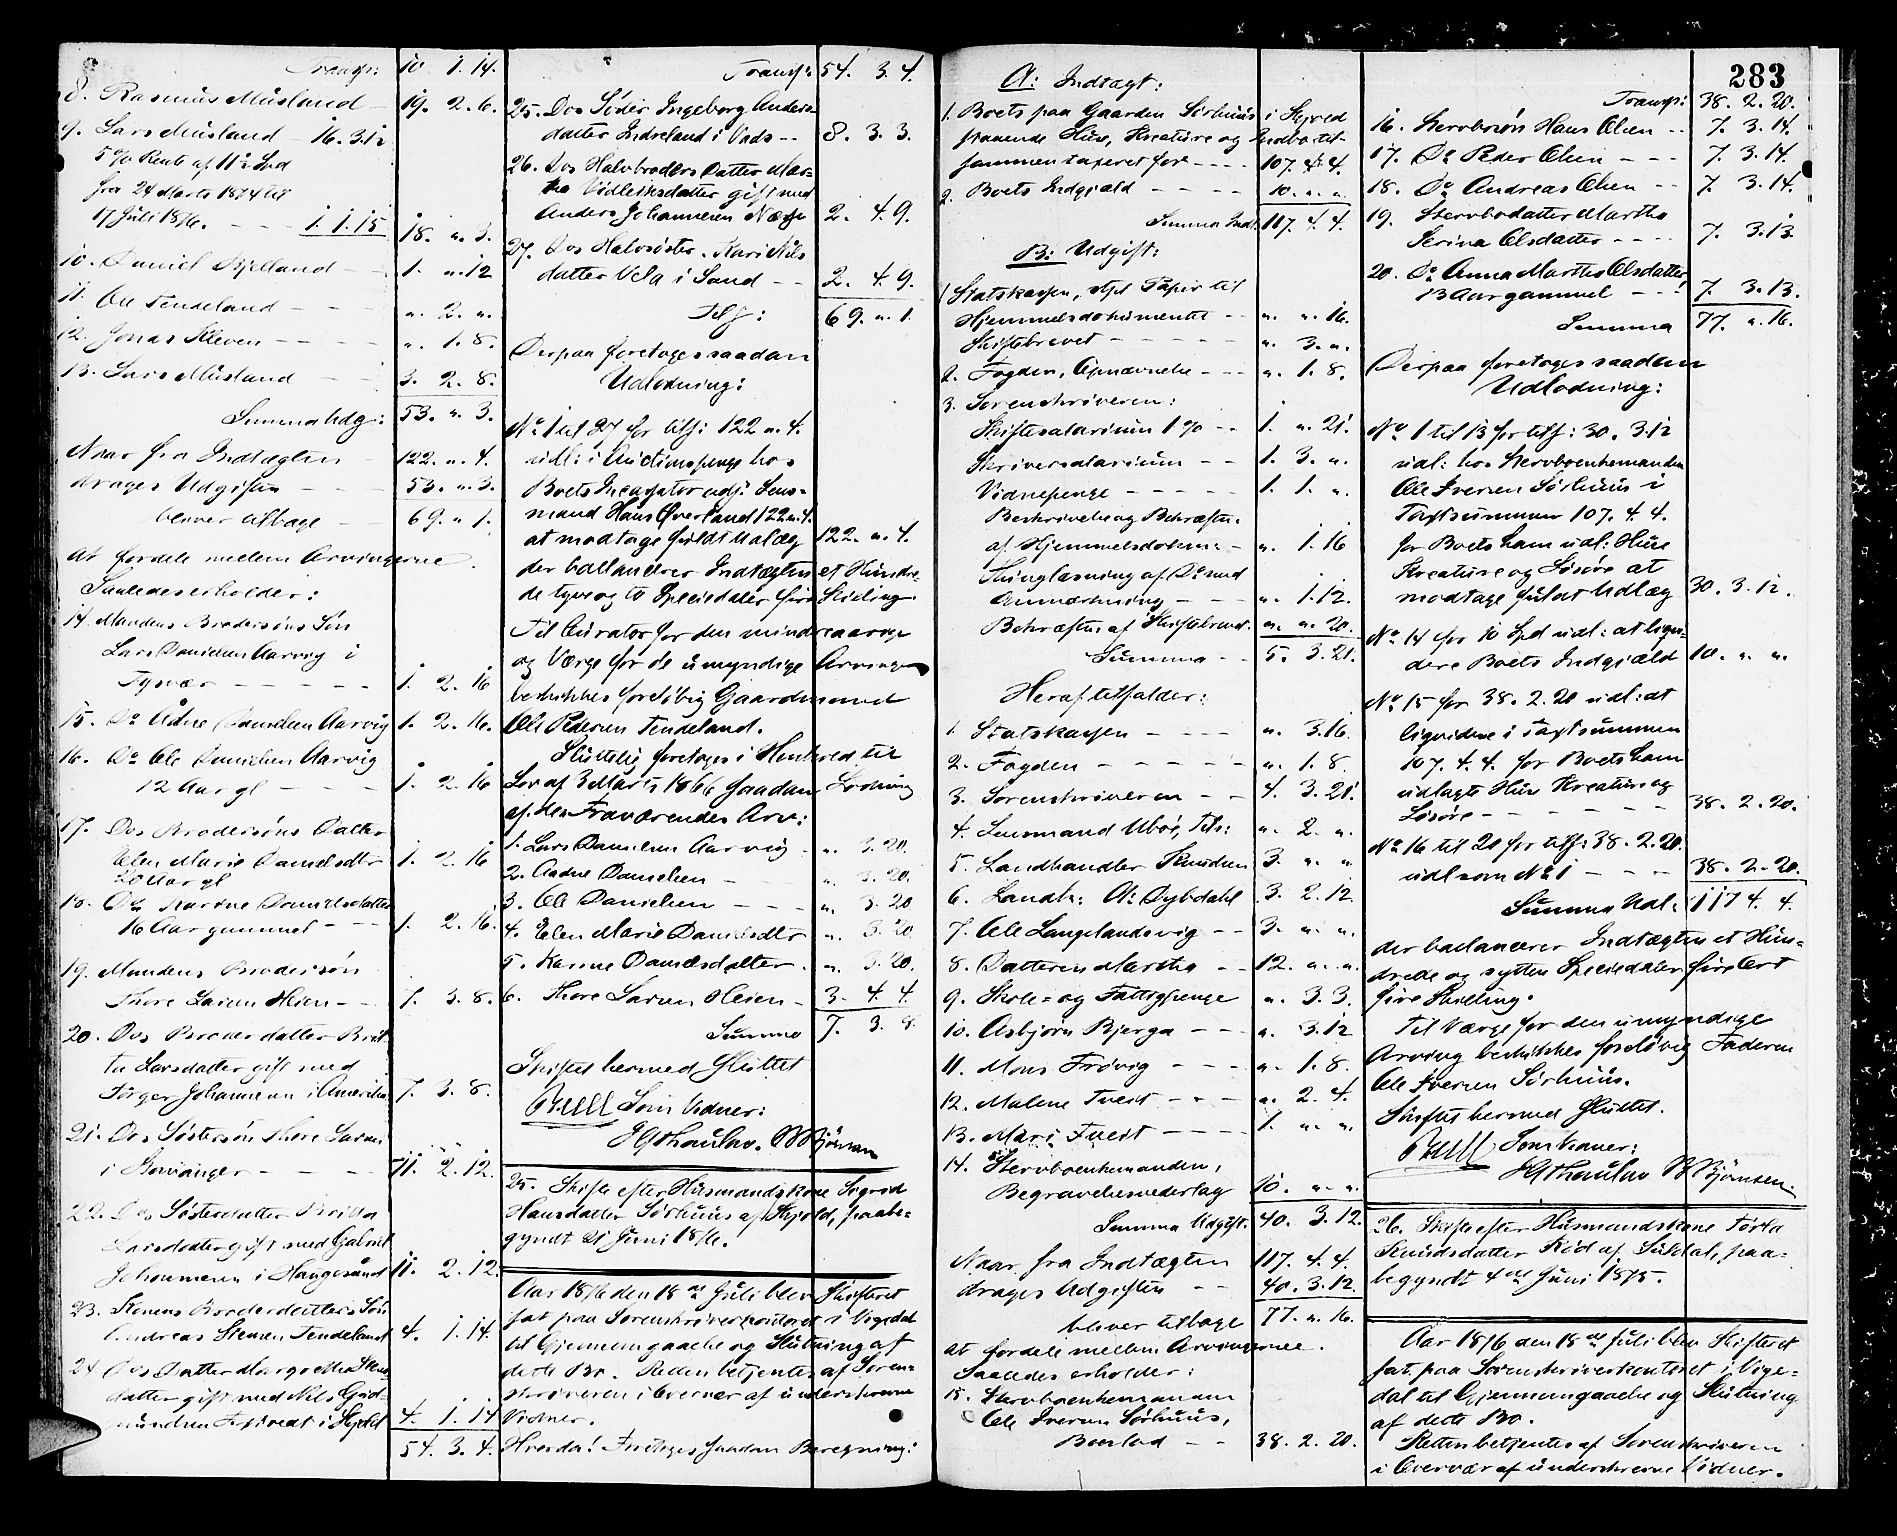 Transp: 10 1. 14.
8. Rasmus Musland — 19. 2. 6.
9. Lars Musland — 16. 3. 12
5 % Rente af 11½ Spd
fra 24 Marts 1874 til
17 Juli 1876. — 1. 1. 15 18. „ 3.
10. Daniel Bjelland — 1. „ 12
11. Ole Tendeland — „ 2. „
12. Jonas Kleven — „ 1. 8.
13. Lars Musland — 3. 2. 8.
Summa Udg: 53. „ 3.
Naar fra Indtægten 122. „ 4.
drages Udgiften — 53. „ 3.
bliver tilbage — 69. „ 1.
at fordele mellem Arvingerne.
Saaledes erholder:
14. Mandens Brodersøns Søn
Lars Danielsen Aarvig i
Tysvær — 1. 2. 16
15. Do Ådne Danielsen Aarvig 1. 2. 16.
16. Do Ole Danielsen Aarvig
12 Aar gl — 1. 2. 16
17. Dos Brodersøns Datter
Elen Marie Danielsdtr 1. 2. 16
20 Aar gl
18. Do Karine Danielsdatter
16 Aar gammel — 1. 2. 16.
19. Mandens Brodersøn
Thore Larsen Heien — 7. 3. 8.
20. Dos Broderdatter Brit-
ta Larsdatter gift med
Tørger Johannesen i Amerika 7. 3. 8.
21. Dos Søstersøn Thore Larsen
i Stavanger — 11. 2. 12.
22. Dos Søsterdatter Britta
Larsdatter gift med Gabriel
Johannesen i Haugesund 11. 2. 12.
23. Konens Broderdatters Søn
Andreas Steensen Tendeland 4. 1. 14.
24 Dos Datter Margrethe Steens
datter gift med Nils Gud-
mundsen Tesdal i Skjold 4. 1. 14
54. 3. 4.
Transp: 54. 3. 4.
25. Dos Søder Ingeborg Anders
datter Indreland i Vads — 8. 3. 3.
26. Dos Halvbroders Datter Mar-
tha Vidleiksdatter gift med
Anders Johannesen Næsse 2. 4. 9.
27. Dos Halvsøster Kari Nils
datter Vela i Sand — 2. 4. 9.
Tilf: 69. „ 1.
Derpaa foretoges saadan
Udlodning:
No 1 til 27 for tilf: 122 „ 4.
udl: i Auctionspenge hos
Boets Incassator udj: Lens-
mand Hans Øverland 122 „ 4.
at modtage fuldt Udlæg 122. „ 4.
der ballancerer Indtægten et Hundre-
de tyve og to Speciedaler fire Skilling.
Til Curator for den mindreaarige
og Værge for de umyndige Arvinger
beskikkes foreløbig Gaardmand
Ole Pedersen Tendeland.
Sluttelig foretoges i Henhold til
Lov af 3 Marts 1866 saadan Lodning
af den Fraværendes Arv:
1. Lars Danielsen Aarvig — „ 3. 20.
2. Aadne Danielsen — „ 3. 20
3. Ole Danielsen — „ 3. 20
4. Elen Marie Danielsdtr „ 3. 20
5. Karine Danielsdatter. „ 3. 20.
6. Thore Larsen Heien — 3. 4. 4.
Summa 7. 3. 8.
Skiftet hermed Sluttet
Bull Som Vidner:
HGThaulav. B Bjørnsen
25. Skifte efter Husmandskone Sigrid
Hansdatter Sørhuus af Skjold, paabe-
gyndt 21 Juni 1876.
Aar 1876 den 18de Juli blev Skifteret
sat paa Sorenskriverkontoret i Vigedal
til Gjennemgaaelse og Slutning af
dette Bo. Retten betjentes af Soren-
skriveren i Overvær af underskrevne
Vidner.
Hvorda! Foretoges saadan Beregning:
283
A: Indtægt:
1. Boets paa Gaarden Sørhuus i Skjold
staaende Huse, Kreature og Indbo til-
sammen taxeret for — 107. 4. 4.
2. Boets Indgjæld — 10. „ „
Summa Indt. 117. 4. 4.
B: Udgift:
1 Statskassen, stpl Papir til
Hjemmelsdokumentet — „ „ 16.
Skiftebrevet — „ 3. „
2. Fogden, Opnævnelse — „ 1. 8.
3. Sorenskriveren:
Skiftesalarium 1 % — 1. „ 21.
Skriversalarium — 1. 3. „
Vidnepenge — 1. 1. „
Beskrivelse og Bekræftn.
af Hjemmelsdokum: — „ 1. 16
Thinglæsning af Do med
Anmærkning — „ 1. 12.
Bekræftn af Skiftebrevet. „ „ 20.
Summa — 5. 3. 21.
Heraf tilfalder:
1. Statskassen — „ 3. 16.
2. Fogden — „ 1. 8.
3. Sorenskriveren — 4. 3. 21.
4. Lensmand Ubøe, Tils: „ 2. „
5. Landhandler Knudsen 3. „ „
6. Landh: A: Dybdahl 3. 2. 12.
7. Ole Langelandsvig — 3. „ „
8. Datteren Martha — 12. „ „
9. Skole- og Fattigpenge „ 3. 3.
10. Asbjørn Bjerga — „ 3. 12
11. Mons Frøvig — „ 1. 8.
12. Malene Tveit — „ 2. 4.
13. Mari Tveit — 1. „ „
14. Stervboenkemanden,
Begravelsesvederlag 10. „ „
Summa Udgift. 40. 3. 12.
Naar fra Indtægten 117. 4. 4.
drages Udgiften — 40. 3. 12.
bliver tilbage 77. „ 16.
at fordele mellem Arvingerne.
Saaledes erholder:
15. Stervboenkemanden
Ole Iversen Sørhuus,
Boeslod — 38. 2. 20.
Transp: 38. 2. 20.
16. Stervbosøn Hans Olsen — 7. 3. 14.
17. Do Peder Olsen — 7. 3. 14.
18. Do Andreas Olsen — 7. 3. 14.
19. Stervbodatter Martha
Serina Olsdatter — 7. 3. 13.
20. Do Anna Martha Olsdatter,
13 Aar gammel — 7. 3. 13.
Summa 77. „ 16.
Derpaa foretoges saadan
Udlodning:
No 1 til 13 for tilf: 30. 3. 12
udl: hos Stervboenkemanden
Ole Iversen Sørhuus i
Taxtsummen 107. 4. 4.
for Boets ham udl: Huse
Kreature og Løsøre at
modtage fuldt Udlæg 30. 3. 12.
No 14 for 10 Spd udl: at liqvi-
dere Boets Indgjæld 10. „ „
No 15 for 38. 2. 20 udl: at
liqvidere i Taxtsummen
107. 4. 4. for Boets ham
udlagte Huse Kreature og
Løsøre — 38. 2. 20.
No 16 til 20 for tilf: 38. 2. 20.
udl som No 1 — 38. 2. 20.
Summa Udl: 117 4. 4.
der ballancerer Indtægten et Hun-
drede og sytten Speciedaler fire Ort
fire Skilling.
Til Værge for den umyndige
Arving beskikkes foreløbig Faderen
Ole Iversen Sørhuus.
Skiftet hermed Sluttet.
Bull Som Vidner:
HGThaulav B Bjørnsen.
26. Skifte efter Husmandskone Torla
Knudsdatter Rød af Suldal, paa-
begyndt 4de Juni 1875.
Aar 1876 den 18de Juli blev Skifteret
sat paa Sorenskriverkontoret i Vige-
dal til Gjennemgaaelse og Slutning
af dette Bo.
Retten betjentes af Sorenskriveren
i Overvær af underskrevne Vidner.